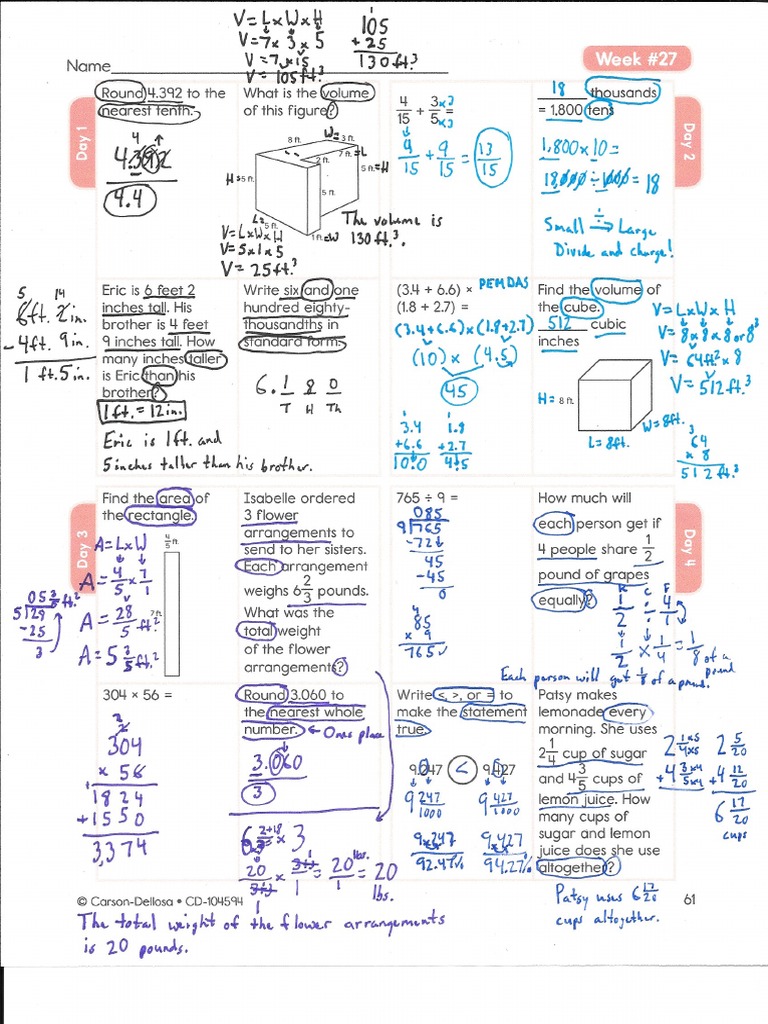 V = L x W x H
V = 7 x 3 x 5
V = 7 x 15
V = 105 ft.³
105
+ 25
130 ft.³
Name
Week #27
Day 1
Round 4.392 to the
nearest tenth.
4
4.392
4.4
What is the volume
of this figure?
8 ft.
W= 3 ft.
7 ft. = L
2 ft.
H = 5 ft.
5 ft. = H
5 ft.
L = 5 ft.
1 ft. = W
V = L x W x H
V = 5 x 1 x 5
V = 25 ft.³
The volume is
130 ft.³.
Day 2
4/15 + 3 x3/5 x3 =
9/15 + 9/15 = 13/15
18 thousands
= 1,800 tens
1,800 x 10 =
18,000 ÷ 1000 = 18
Small ÷ → Large
Divide and charge!
5 14
6 ft. 2 in.
- 4 ft. 9 in.
1 ft. 5 in.
Eric is 6 feet 2
inches tall. His
brother is 4 feet
9 inches tall. How
many inches taller
is Eric than his
brother?
1 ft. = 12 in.
Eric is 1 ft. and
5 inches taller than his brother.
Write six and one
hundred eighty-
thousandths in
standard form.
6. 1 8 0
T H Th
(3.4 + 6.6) × PEMDAS
(1.8 + 2.7) =
(3.4 + 6.6) x (1.8 + 2.7)
(10) x (4.5)
45
1 1
3.4 1.8
+6.6 +2.7
10.0 4.5
Find the volume of
the cube.
512 cubic
inches
H = 8 ft.
L = 8 ft.
W = 8 ft.
V = L x W x H
V = 8 x 8 x 8 or 8³
V = 64 ft² x 8
V = 512 ft.³
3
64
x 8
512 ft.³
Day 3
Find the area of
the rectangle.
4/5 ft.
7 ft.
A = L x W
A = 4/5 x 7/1
A = 28/5 ft.²
A = 5 3/5 ft.²
05 3/5 ft.²
5 | 29
- 25
3
Isabelle ordered
3 flower
arrangements to
send to her sisters.
Each arrangement
weighs 6 2/3 pounds.
What was the
total weight
of the flower
arrangements?
Day 4
765 ÷ 9 =
085
9 | 765
- 72
45
- 45
0
4
85
x 9
765 ✓
How much will
each person get if
4 people share 1/2
pound of grapes
equally?
K C F
1/2 ÷ 4/1
1/2 x 1/4 = 1/8 of a
pound
Each person will get 1/8 of a pound.
304 × 56 =
2
2
304
x 56
1824
+ 1550
3,374
Round 3.060 to
the nearest whole
number. ← Ones place
3.060
3
6 x 3
20 x = 20 lbs. = 20
1 1 lbs.
Write <, >, or = to
make the statement
true.
9.247 < 9.427
9 247/1000 9 427/1000
9.247 9.427
92.47% 94.27%
Patsy makes
lemonade every
morning. She uses
2 1/4 cup of sugar
and 4 3/5 cups of
lemon juice. How
many cups of
sugar and lemon
juice does she use
altogether?
2 1 x5/4 x5 2 5/20
+ 4 3 x4/5 x4 + 4 12/20
6 17/20
cups
© Carson-Dellosa • CD-104594
Patsy uses 6 17/20
cups altogether.
61
The total weight of the flower arrangements
is 20 pounds.